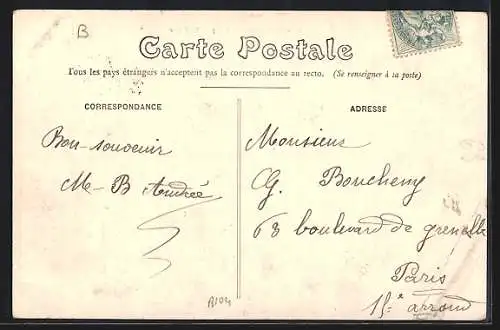 B
Carte Postale
Tous les pays étrangers n'acceptent pas la correspondance au recto. (Se renseigner à la poste)
CORRESPONDANCE
Bon souvenir
M-B Andrée
ADRESSE
Monsieur
G. Boucheny
63 boulevard de grenelle
Paris
15e arrond